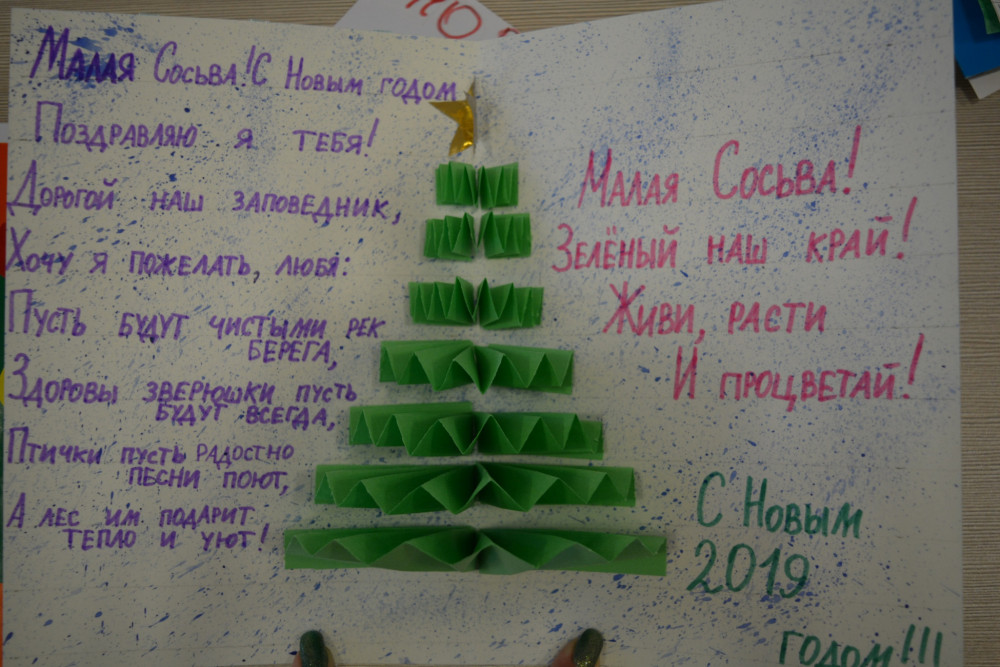 Малая Сосьва! С Новым годом
Поздравляю я тебя!
Дорогой наш заповедник,
Хочу я пожелать, любя:
Пусть будут чистыми рек
берега,
Здоровы зверюшки пусть
будут всегда,
Птички пусть радостно
песни поют,
А лес им подарит
тепло и уют!
Малая Сосьва!
Зелёный наш край!
Живи, расти
И процветай!
С Новым
2019
годом!!!